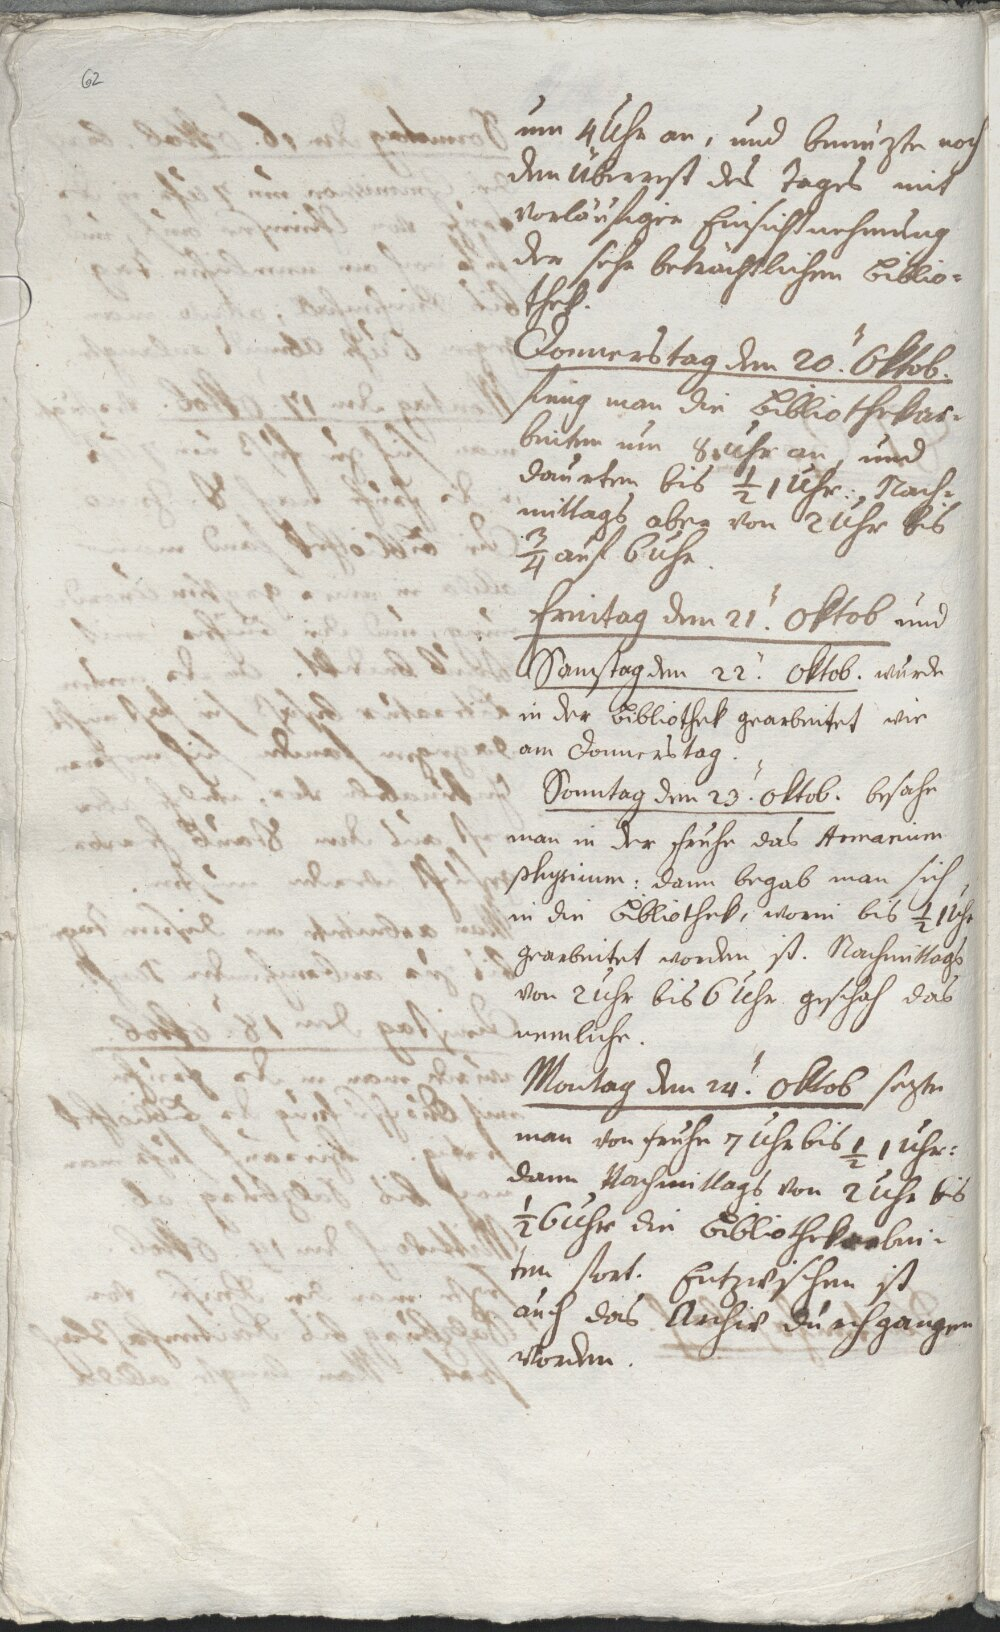 62
um 4 Uhr an, und benuzte noch
den Überrest des Tages mit
vorläufiger Einsichtnehmung
der sehr beträchtlichen Biblio=
thek.
Donnerstag den 20. Oktob.
fieng man die Bibliothekar=
beiten um 8 Uhr an, und
daurten bis ½ 1 Uhr: Nach=
mittags aber von 2 Uhr bis
¾ auf 6 Uhr.
Freitag den 21. Oktob und
Samstag den 22. Oktob. wurde
in der Bibliothek gearbeitet wie
am Donnerstag.
Sonntag den 23. Oktob. besahe
man in der Fruhe das Armarium
physicum: dann begab man sich
in die Bibliothek, worin bis ½ 1 Uhr
gearbeitet worden ist. Nachmittags
von 2 Uhr bis 6 Uhr geschah das
nemliche.
Montag den 24. Oktob sezte
man von fruhe 7 Uhr bis ½ 1 Uhr:
dann Nachmittags von 2 Uhr bis
½ 6 Uhr die Bibliothekarbei=
ten fort. Entzwischen ist
auch das Archiv durchgangen
worden.